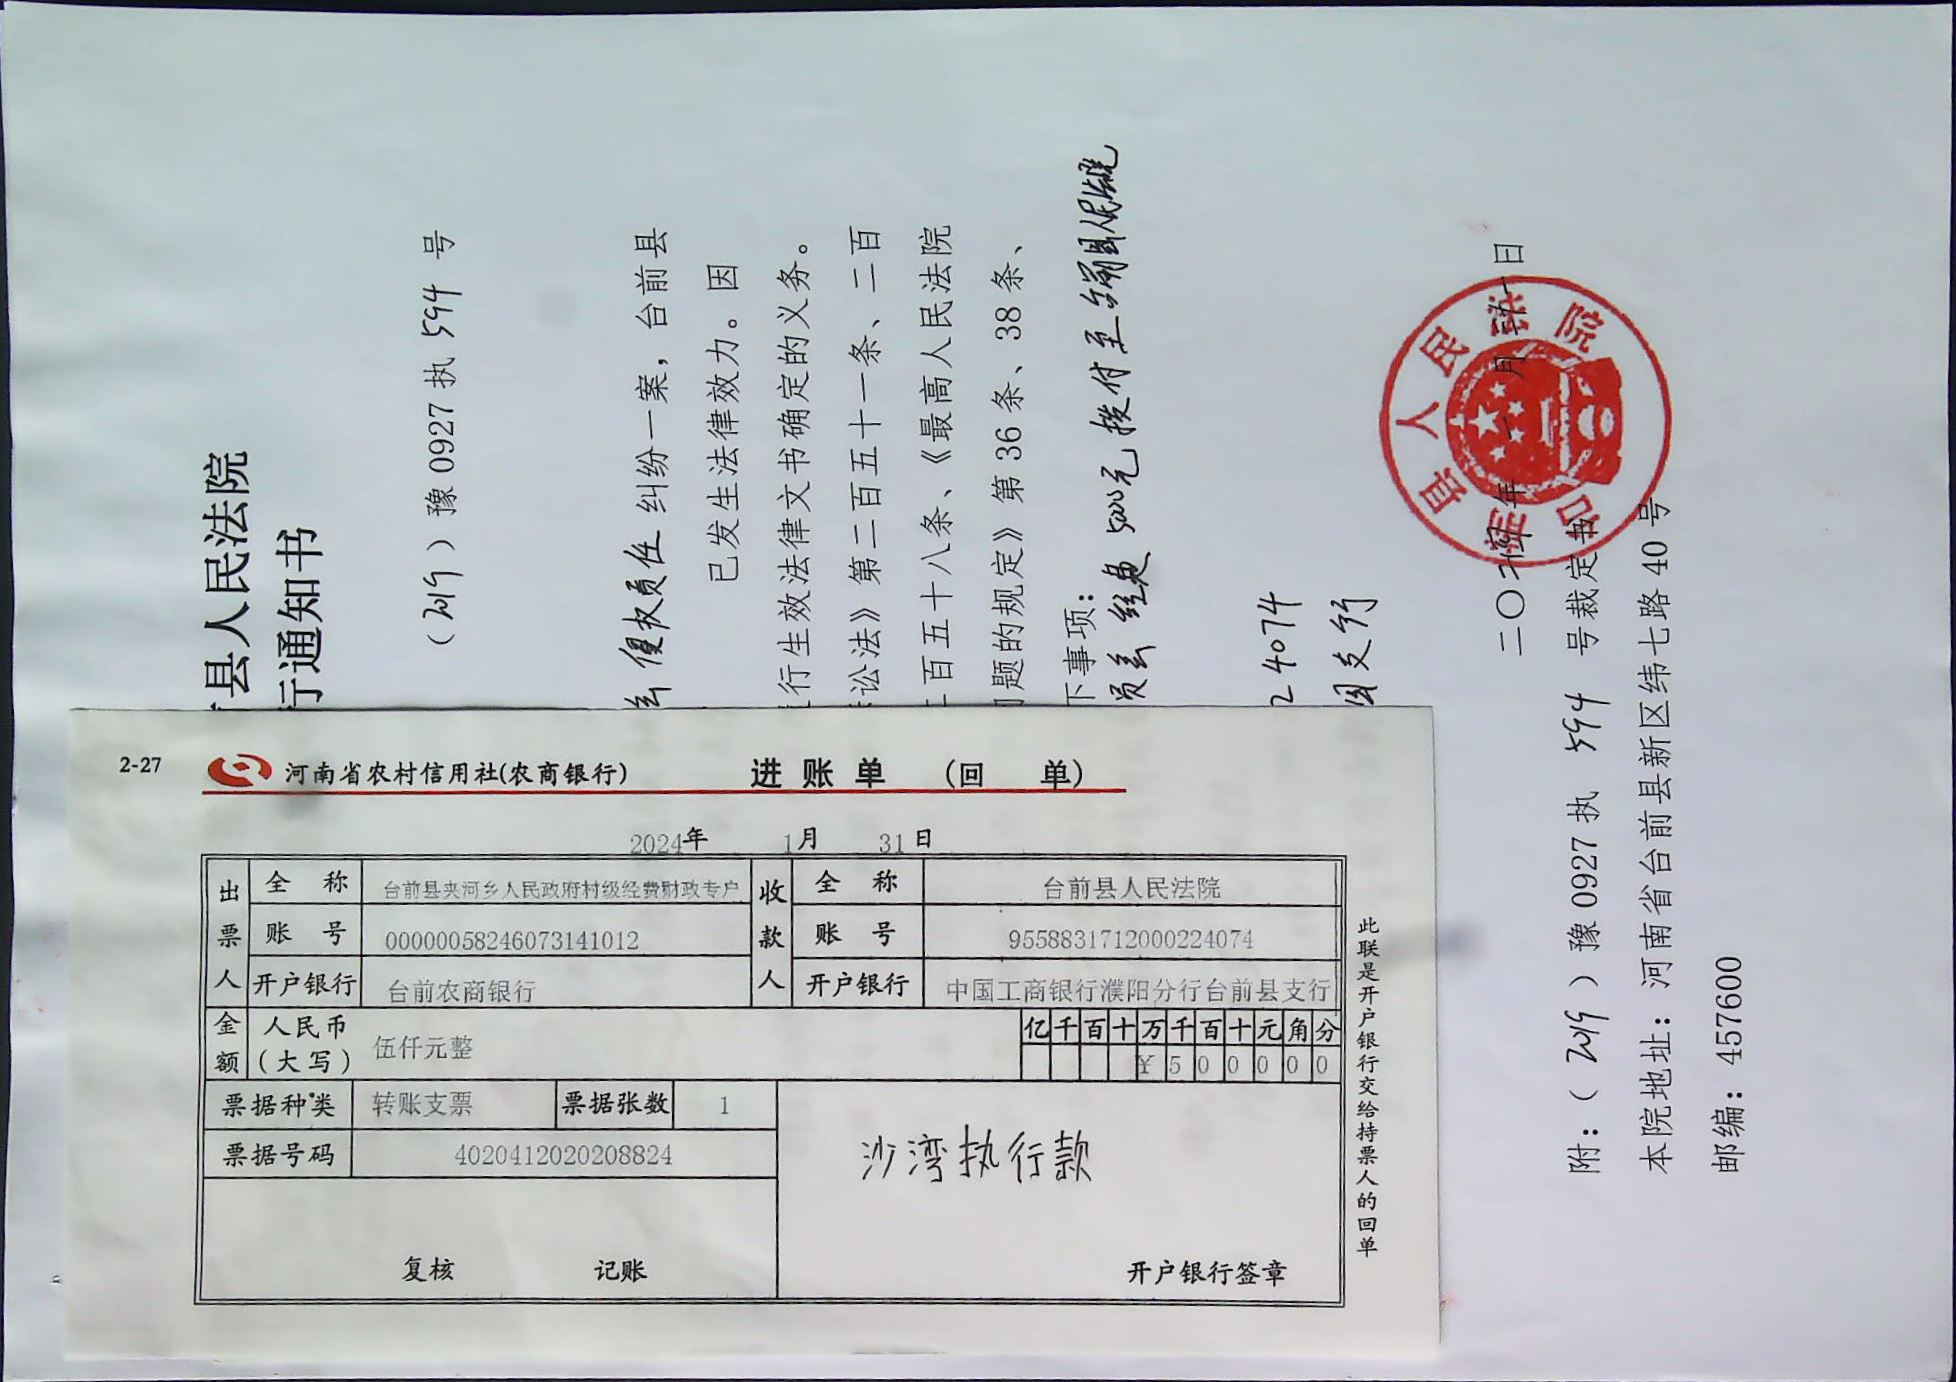 县人民法院
行通知书
(2024)豫0927执594号
侵权责任纠纷一案，台前县
已发生法律效力。因
行生效法律文书确定的义务。
讼法》第二百五十一条、二百
百五十八条、《最高人民法院
问题的规定》第36条、38条、
下事项：
经费5000元拨付至台前县人民法院
24074
支行
二〇二四年一月 日
附：(2024)豫0927执594号裁定书
本院地址：河南省台前县新区纬七路40号
邮编：457600
台前县人民法院
2-27 河南省农村信用社(农商银行) 进账单 (回 单)
2024年 1月 31日
出票人 全称 台前县夹河乡人民政府村级经费财政专户 收款人 全称 台前县人民法院
账号 00000058246073141012 账号 9558831712000224074
开户银行 台前农商银行 开户银行 中国工商银行濮阳分行台前县支行
金额 人民币(大写) 伍仟元整 亿千百十万千百十元角分
¥500000
票据种类 转账支票 票据张数 1
票据号码 4020412020208824
沙湾执行款
复核 记账 开户银行签章
此联是开户银行交给持票人的回单